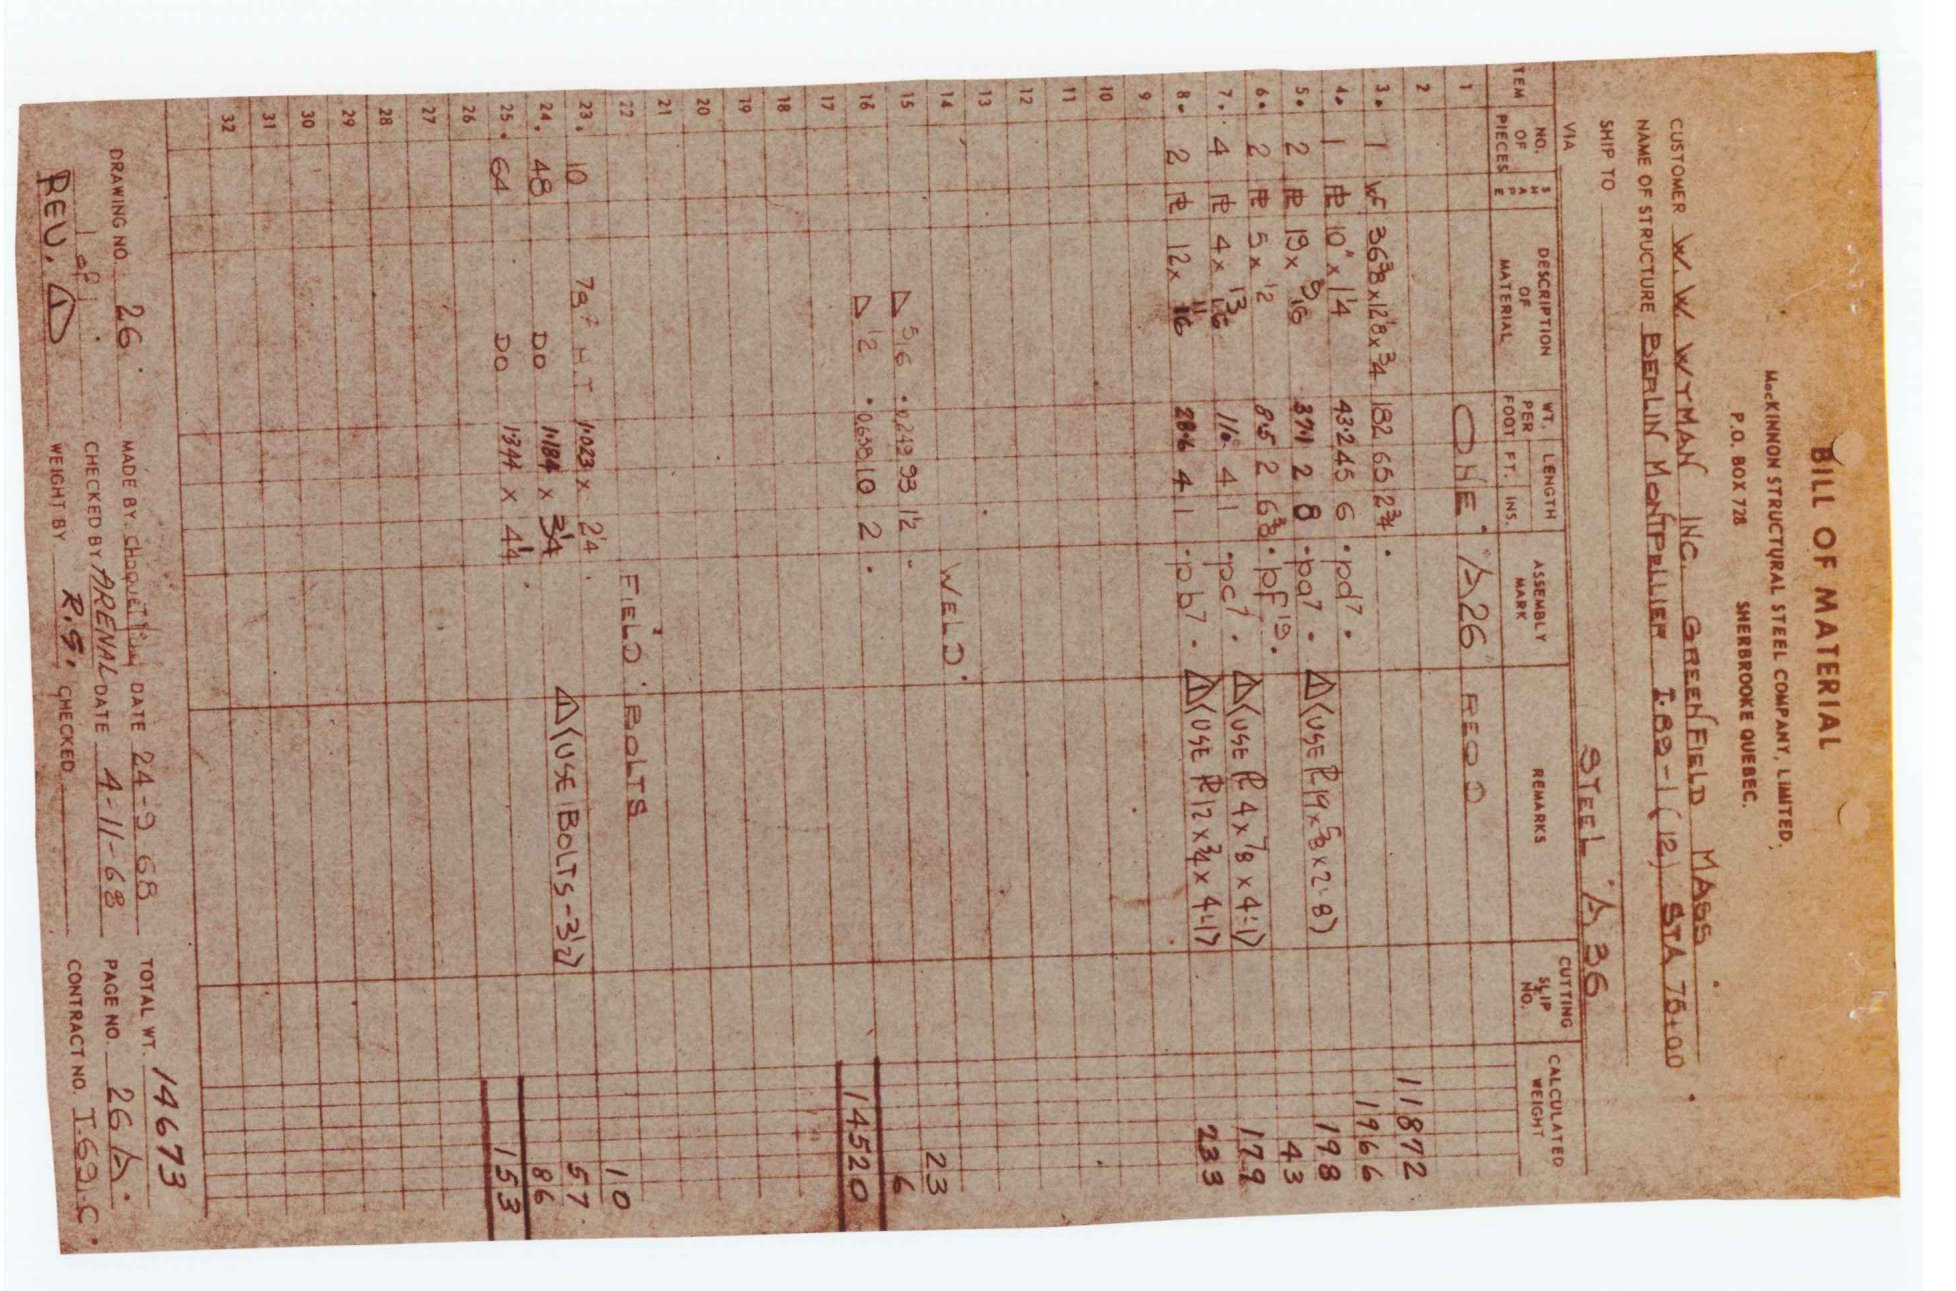 BILL OF MATERIAL
McKINNON STRUCTURAL STEEL COMPANY, LIMITED,
P.O. BOX 728 SHERBROOKE QUEBEC.
CUSTOMER W. W. WYMAN INC. GREENFIELD MASS.
NAME OF STRUCTURE BERLIN MONTPELLIER I-89-1(12) STA 75+00
SHIP TO
VIA STEEL A 36
ITEM NO. OF PIECES SHAPE DESCRIPTION OF MATERIAL WT. PER FOOT LENGTH FT. INS. ASSEMBLY MARK REMARKS CUTTING SLIP NO. CALCULATED WEIGHT
1 ONE A26 REQD
2
3. 1 WF 36 3/8 x 12 1/8 x 3/4 182 65 2 3/4 11872
4. 1 PL 10" x 1 1/4 43.2 45 6 pd7 1966
5. 2 PL 19 x 9/16 37.1 2 8 pa7 △1 (USE PL 19 x 5/8 x 2-8) 198
6. 2 PL 5 x 1/2 8.5 2 6 3/8 pf19 43
7. 4 PL 4 x 13/16 11.0 4 1 pc7 △1 (USE PL 4 x 7/8 x 4-1) 179
8. 2 PL 12 x 11/16 28.6 4 1 pb7 △1 (USE PL 12 x 3/4 x 4-1) 233
9
10
11
12
13
14 WELD
15 △ 5/16 .0.249 93 1 1/2 23
16 △ 1/2 .0.638 10 2 6
14520
17
18
19
20
21
22 FIELD BOLTS
23. 10 7/8 ø H T 1.023 x 2 1/4 10
24. 48 DO 1.184 x 3 1/4 △1 (USE BOLTS-3 1/2) 57
25. 64 DO 1.344 x 4 1/4 86
153
26
27
28
29
30
31
32
DRAWING NO. 26. MADE BY DATE 24-9 68 TOTAL WT. 14673
1 of 1 CHECKED BY ARENAL DATE 4-11-68 PAGE NO. 26 A.
REV. △1 WEIGHT BY R.S. CHECKED CONTRACT NO. I.69.C.